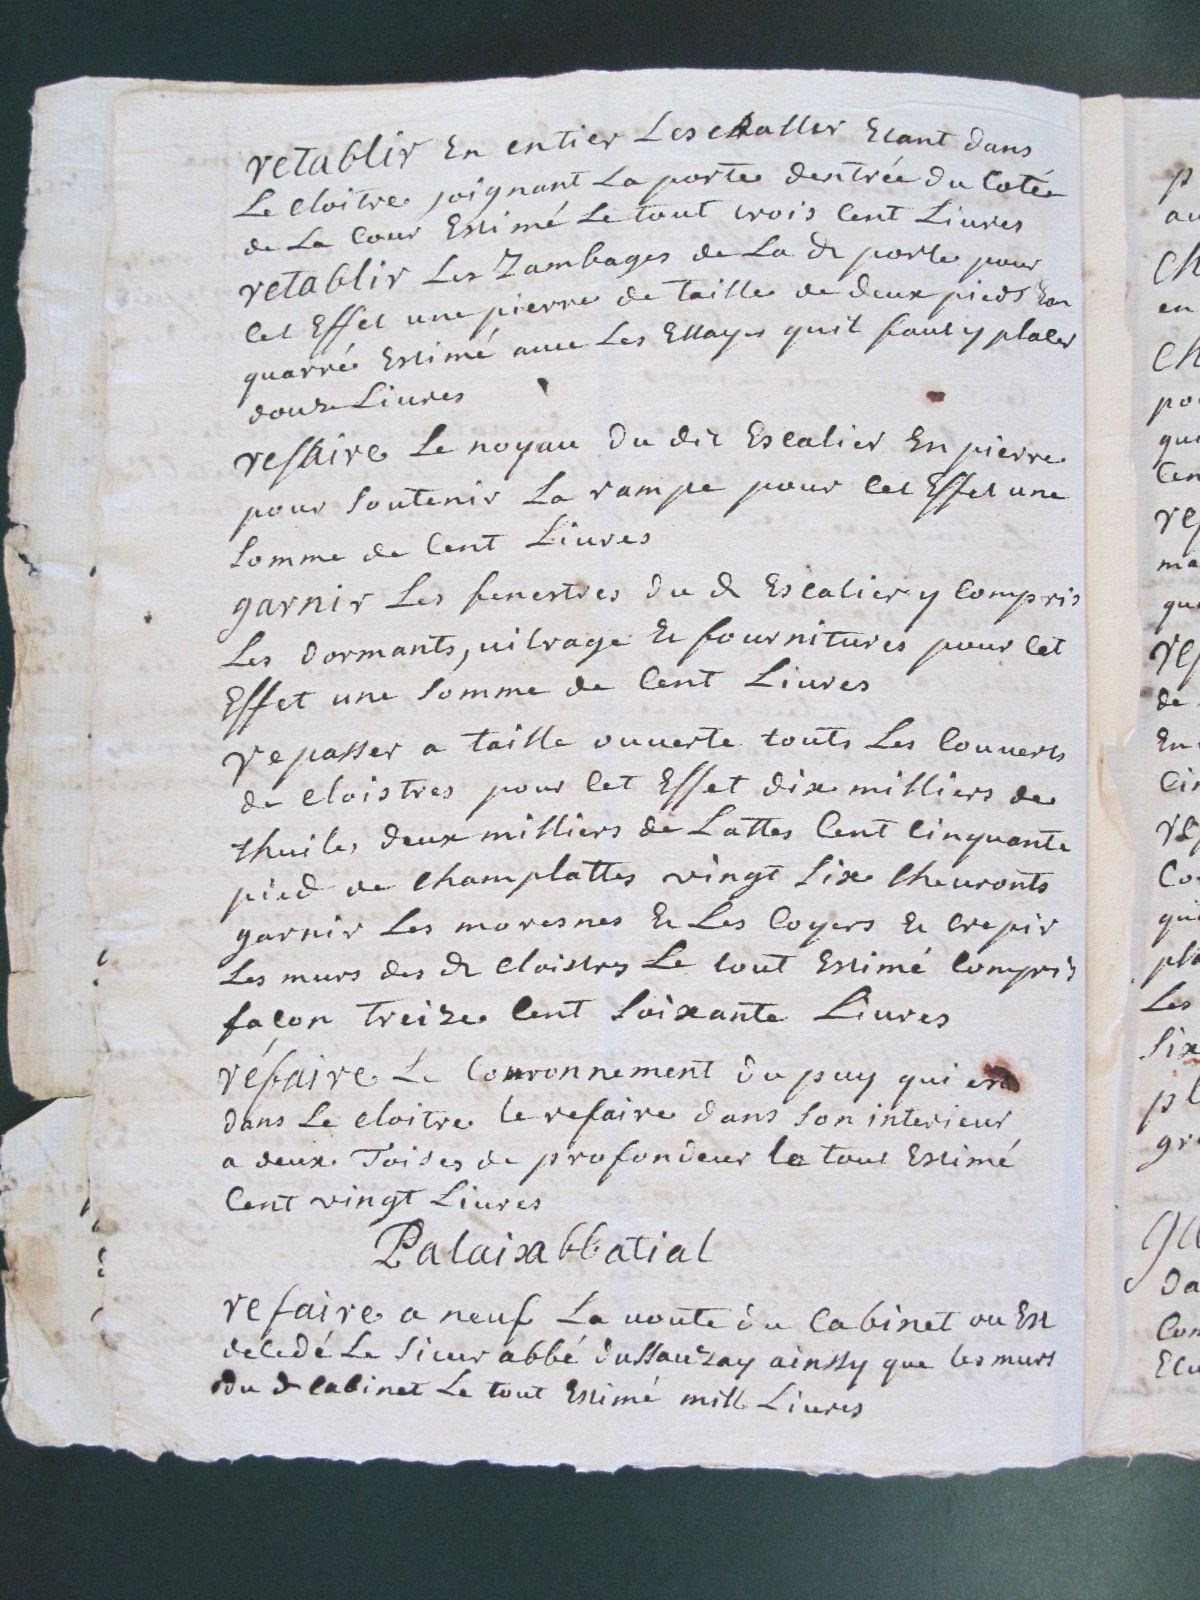 retablir En entier Les Etant dans
Le cloitre joignant La porte dentrée du Cotée
de La Cour Estimé Le tout trois Cent Livres
retablir Les Jambages de La d porte pour
Cet Effet une pierre de taille de deux pieds En
quarré Estimé avec Les Ettayes quil faut y placer
douze Livres
refaire Le noyau du dit Escalier En pierre
pour Soutenir La rampe pour Cet Effet une
Somme de Cent Livres
garnir Les fenestres du d Escalier y Compris
Les dormants, vitrage Et fournitures pour Cet
Effet une Somme de Cent Livres
repasser a taille ouverte touts Les Couverts
de cloistres pour Cet Effet dix milliers de
thuile, deux milliers de Lattes Cent Cinquante
pied de Champlattes vingt Six Chevronts
garnir Les moresnes Et Les Coyers Et Crepir
Les murs des d Cloistres Le tout Estimé Compris
façon treize Cent Soixante Livres
réfaire Le Couronnement du puy qui est
dans Le cloitre le refaire dans Son interieur
a deux Toises de profondeur le tout Estimé
Cent vingt Livres
Palaix abbatial
refaire a neuf La voute du Cabinet ou Est
décedé Le Sieur abbé dussauzay ainssy que les murs
du d Cabinet Le tout Estimé mill Livres